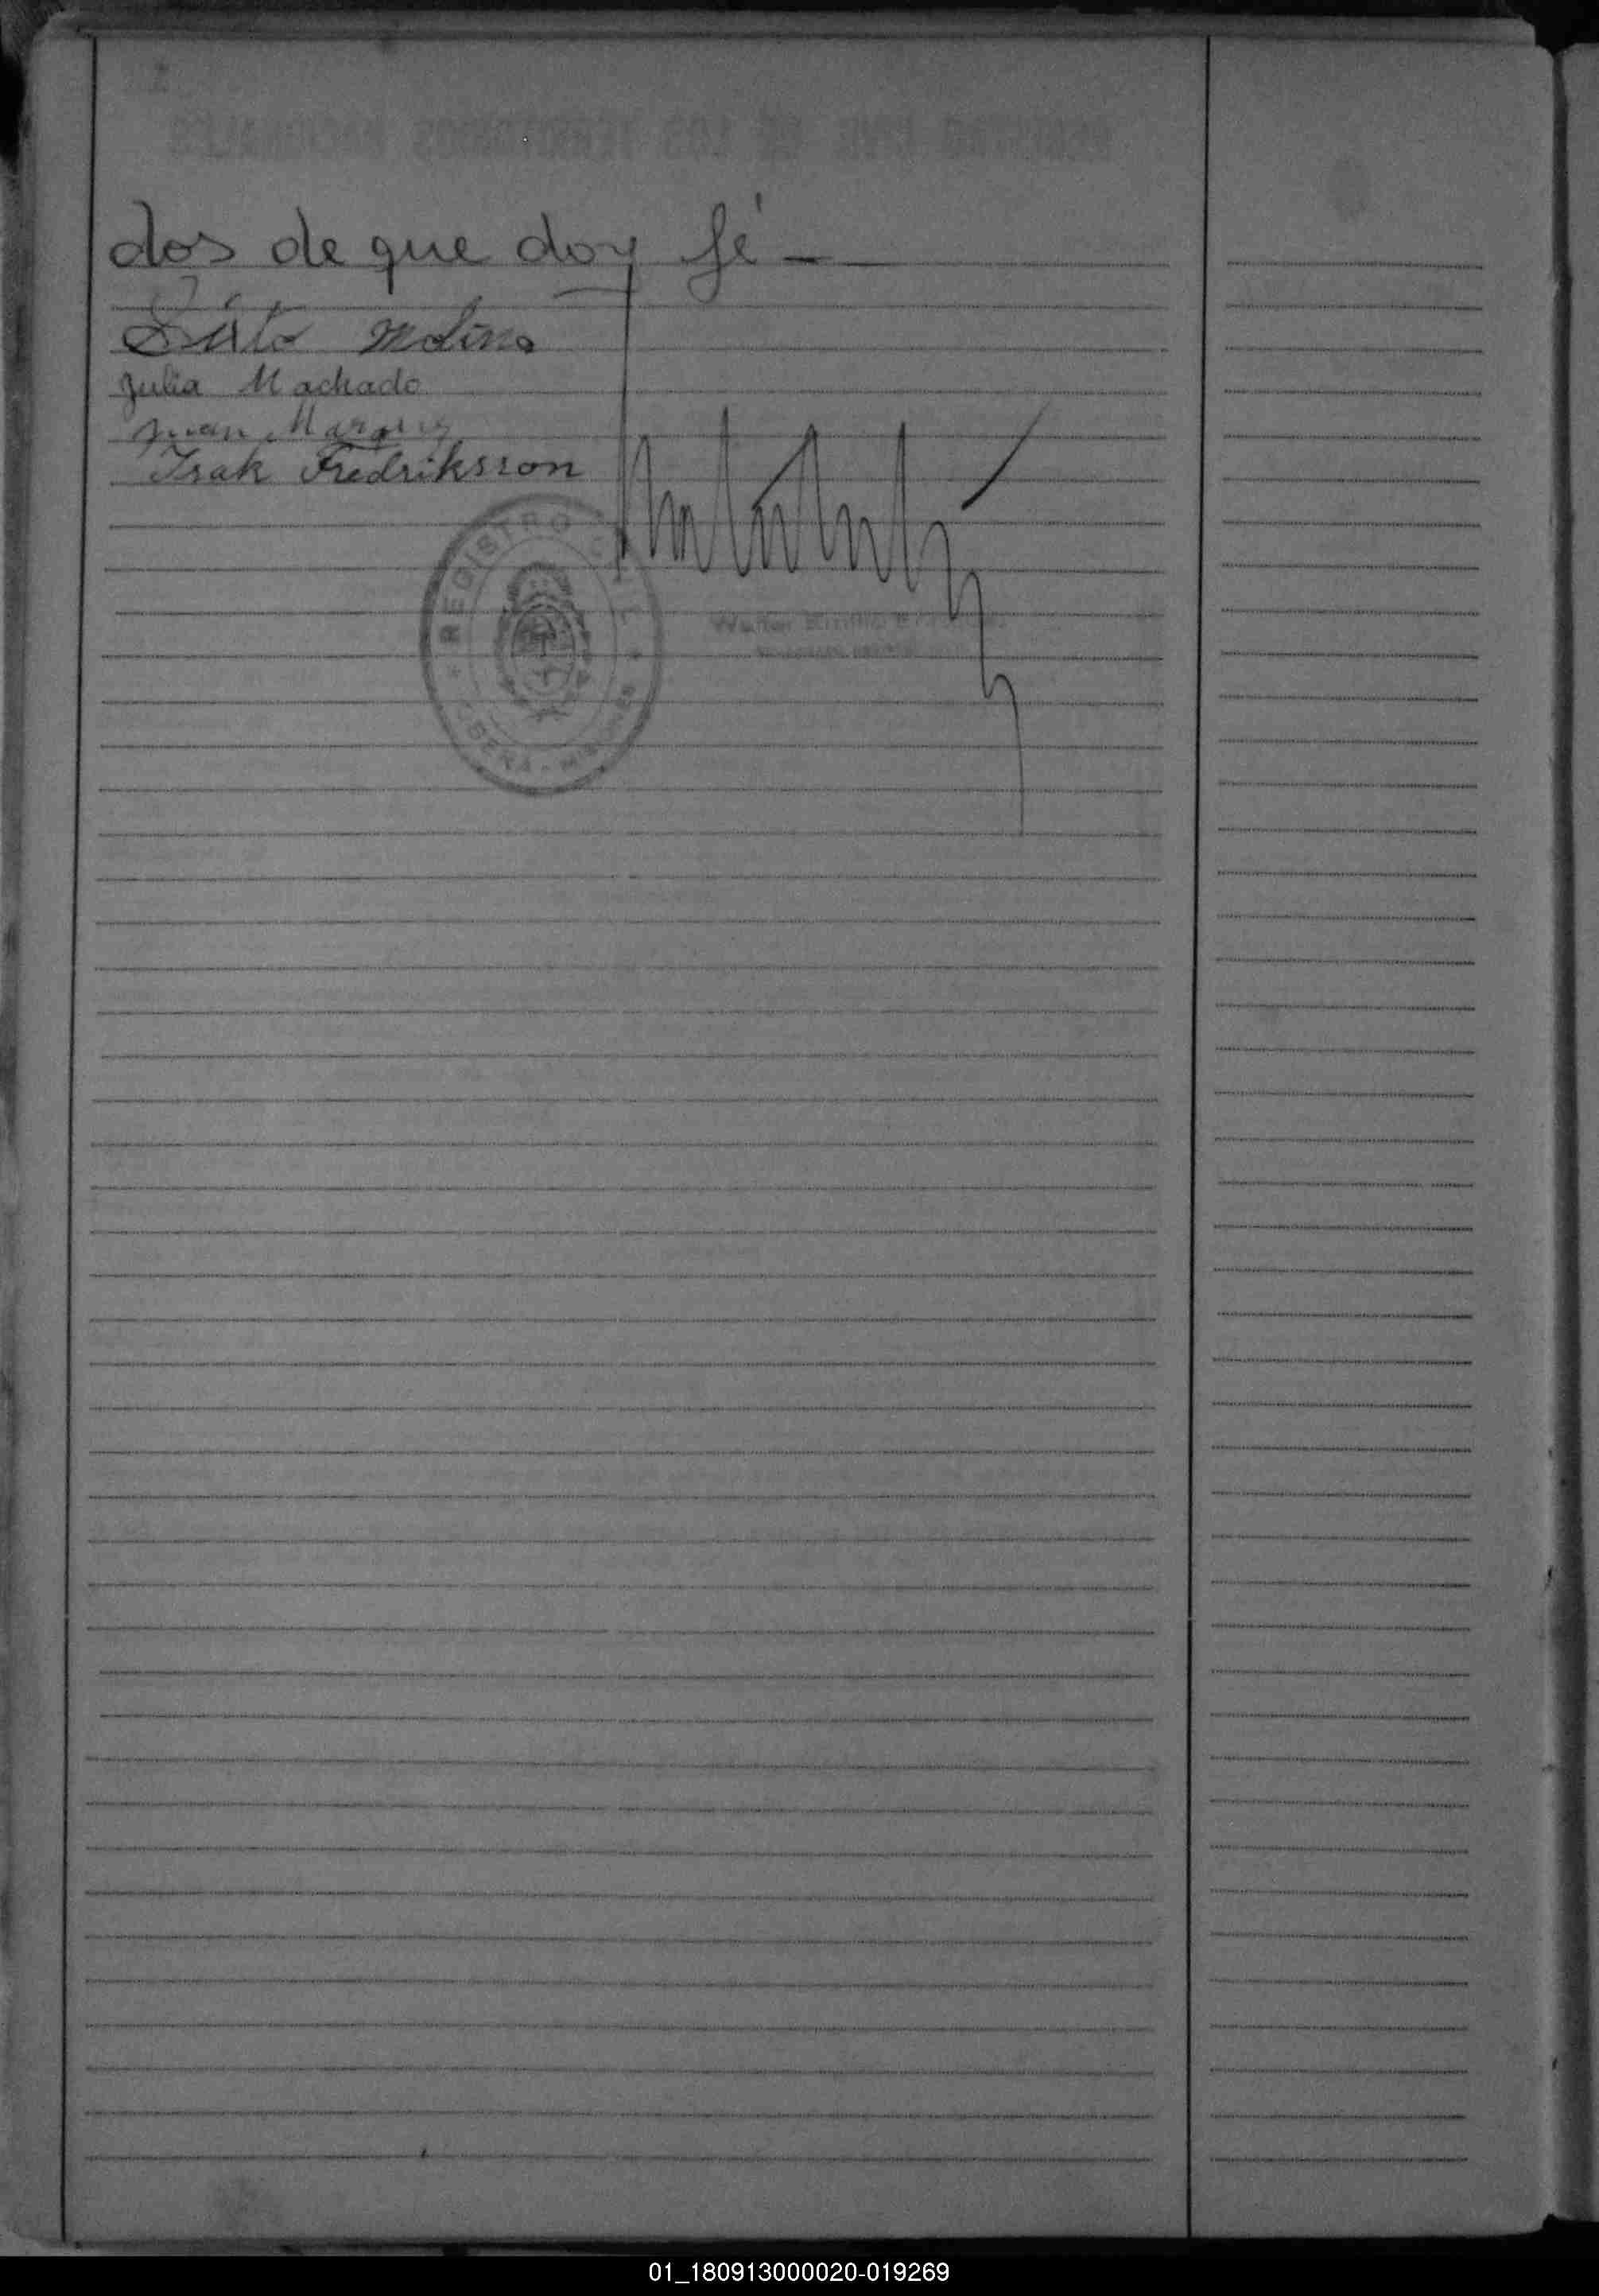 dos de que doy fé -
Sixto Molina
Julia Machado
Juan Marquez
Isak Fredriksson
REGISTRO CIVIL
01_180913000020-019269